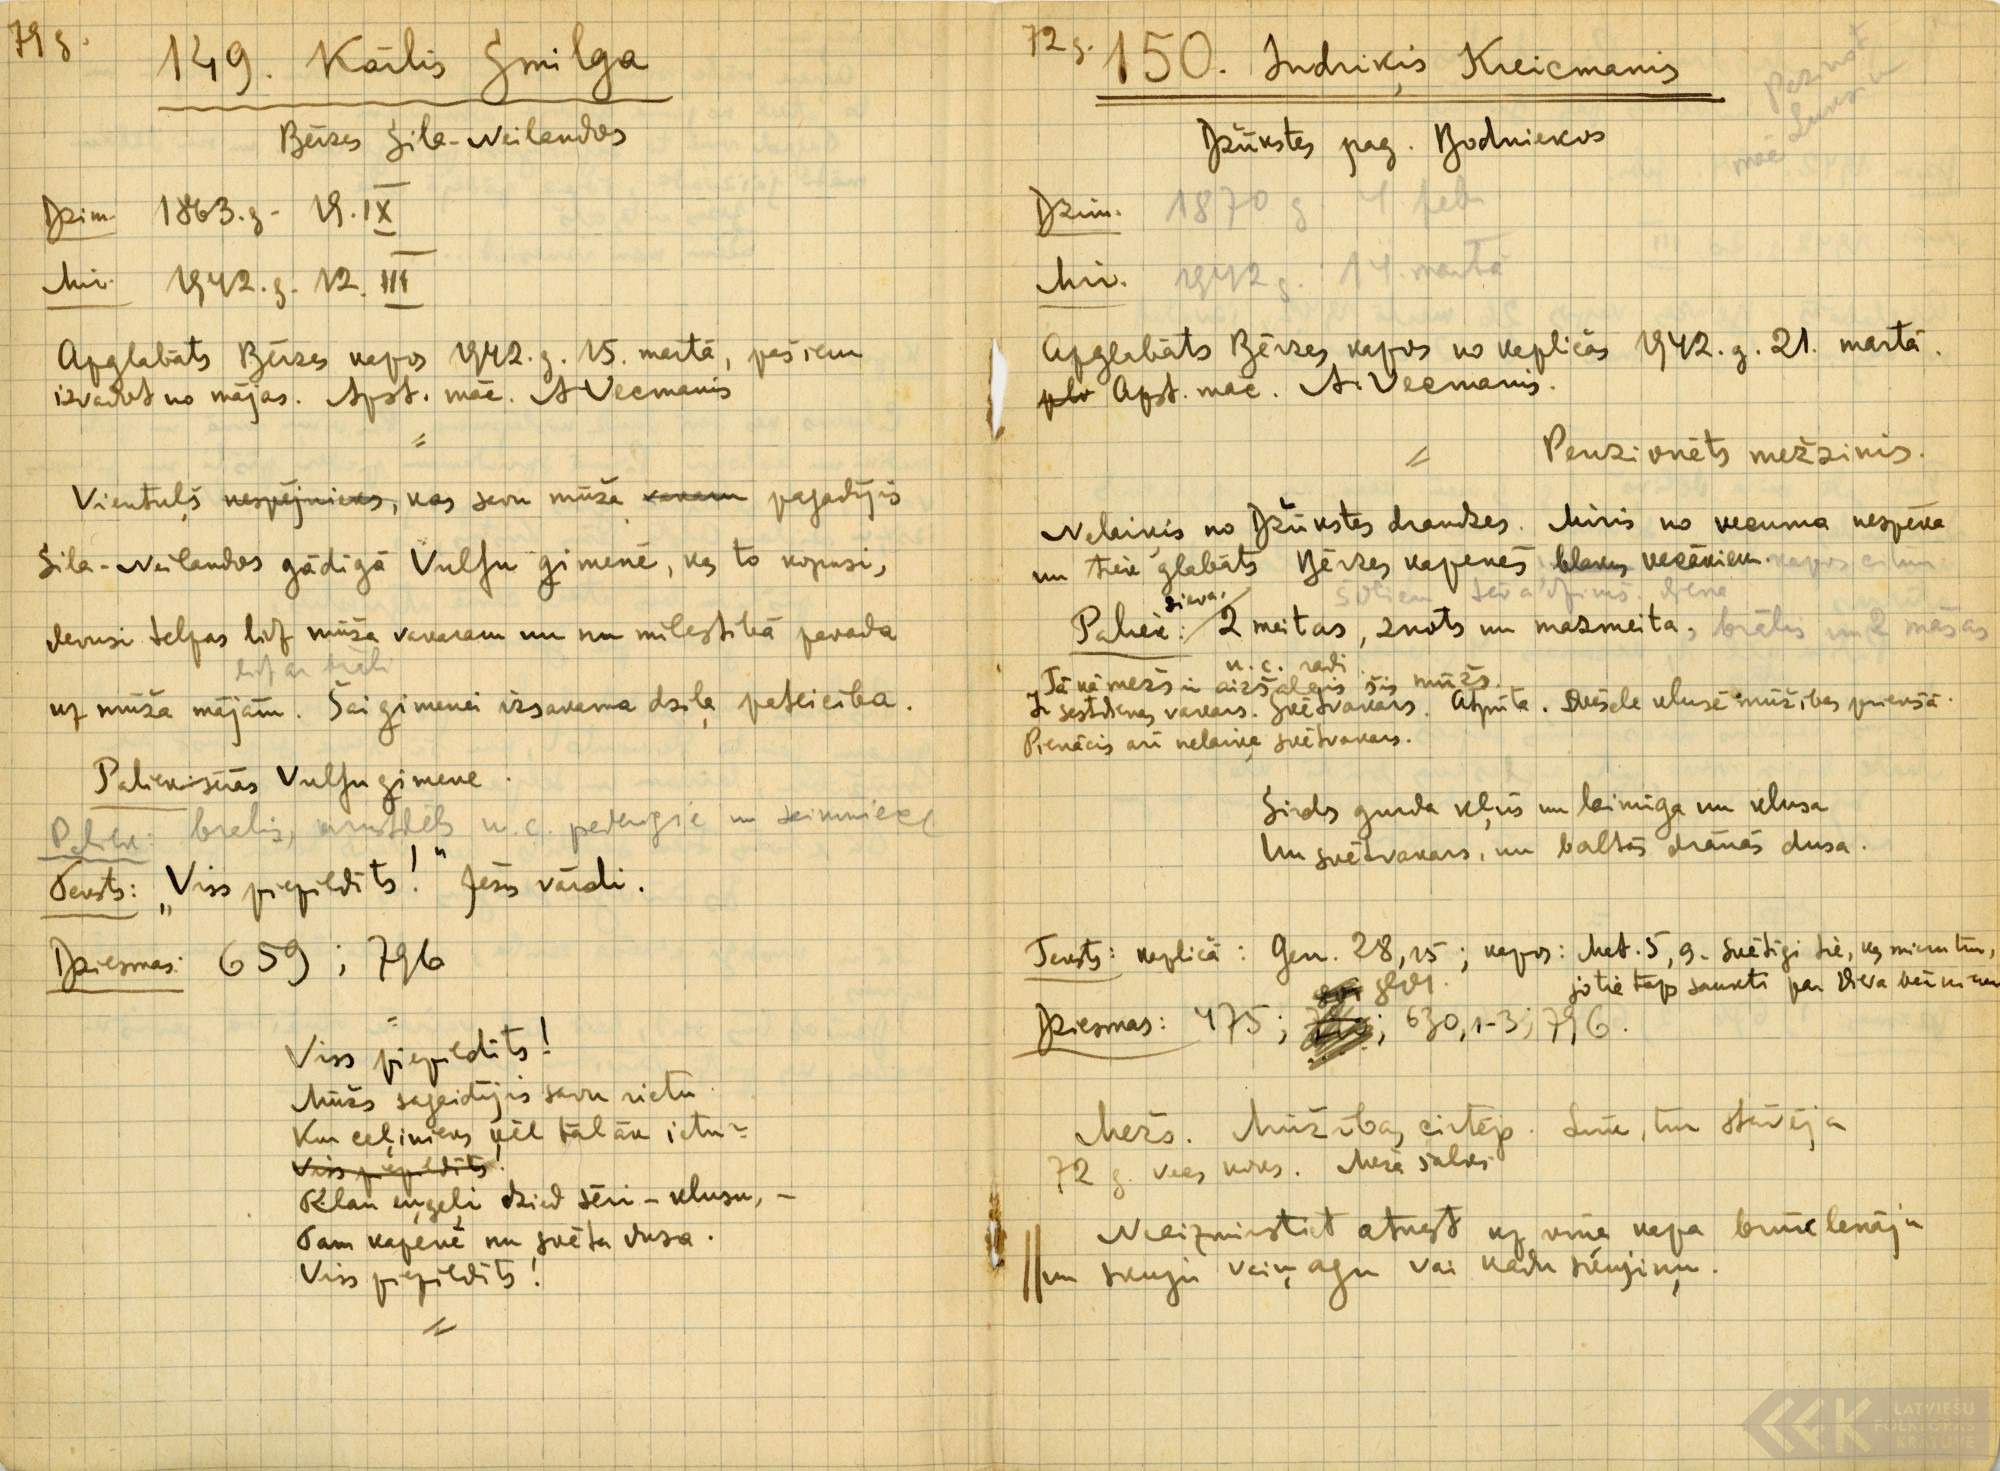 79 g.
149. Kārlis Smilga
Bērzes Sila-Neilandos
Dzim. 1863. g. 19. IX
Mir. 1942. g. 12. III
Apglabāts Bērzes kapos 1942. g. 15. martā, pašiem
izvadot no mājas. Apst. māc. A Vecmanis
Vientuļš nespējnieks, kas savu mūža vakaru pagadījis
Sila-Neilandos gādīgā Vulfu ģimenē, kas to kopusi,
devusi telpas līdz mūža vakaram un nu mīlestībā pavada
uz mūža mājām. Šai ģimenei izsakama dziļa pateicība.
Paliek: sērās Vulfu ģimene.
Paliek: brālis, krustdēls u. c. pederīgie un saimnieki
Teksts: „Viss piepildīts!" Jēzus vārdi.
Dziesmas: 659; 796
Viss piepildīts!
Mūžs sagaidījis savu rietu
Kur ceļinieks ķēl tālāk ietu
Viss piepildīts!
Klau eņģeļi dzied sēri – klusu, –
Tam kapenē nu svēta dusa.
Viss piepildīts!
72 g.
150. Indriķis Kreicmanis
Džūkstes pag. Bodniekos
Dzim. 1870 g. 4. feb.
Mir. 1942 g. 14. martā
Apglabāts Bērzes kapos no kapličas 1942. g. 21. martā.
Apst. māc. A. Vecmanis.
Penzionēts mežzinis.
Nelaiķis no Džūkstes draudzes. Miris no vecuma nespēka
un tiek glabāts Bērzes kapenēs blakus vecākiem.
sieva,
Paliek: 2 meitas, znots un mazmeita, brālis un 2 māsas
u. c. radi.
Tā kā mežs ir aizšalcis šis mūžs.
Ir sestdienas vakars. Svētvakars. Atpūta. Dvēsele klusē mūžības priekšā.
Pienācis arī nelaiķa svētvakars.
Sirds gurda kļūs un laimīga un klusa
Un svētvakars, un baltās drānās dusa.
Teksts: kapličā: Gen. 28,15; kapos: Mat. 5,9. Svētīgi tie, kas mieru tur,
jo tie taps saukti par Dieva bērniem
Dziesmas: 475; 630,1-3; 796.
Mežs. Mūžības cirtējs. Lūk, tur stāvēja
72 g. vecs koks. Meža šalkas
Neaizmirstiet atnest uz viņa kapa brūklenāju
un skuju vaiņagu vai kādu sūnjiņu.
LATVIEŠU
FOLKLORAS
KRĀTUVE